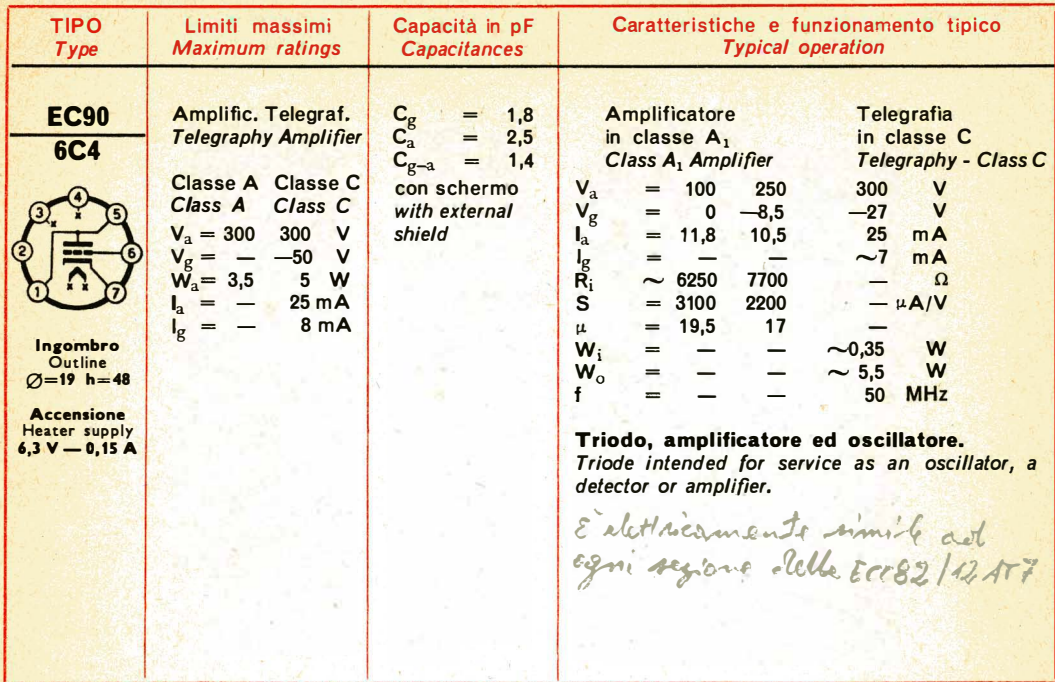 TIPO
Type
Limiti massimi
Maximum ratings
Capacità in pF
Capacitances
Caratteristiche e funzionamento tipico
Typical operation
EC90
6C4
1 2 3 4 5 6 7
Ingombro
Outline
Ø=19 h=48
Accensione
Heater supply
6,3 V — 0,15 A
Amplific. Telegraf.
Telegraphy Amplifier
Classe A Classe C
Class A Class C
Va = 300 300 V
Vg = — —50 V
Wa = 3,5 5 W
Ia = — 25 mA
Ig = — 8 mA
Cg = 1,8
Ca = 2,5
Cg–a = 1,4
con schermo
with external
shield
Amplificatore Telegrafia
in classe A1 in classe C
Class A1 Amplifier Telegraphy - Class C
Va = 100 250 300 V
Vg = 0 —8,5 —27 V
Ia = 11,8 10,5 25 mA
Ig = — — ~7 mA
Ri ~ 6250 7700 — Ω
S = 3100 2200 — μA/V
μ = 19,5 17 —
Wi = — — ~0,35 W
Wo = — — ~ 5,5 W
f = — — 50 MHz
Triodo, amplificatore ed oscillatore.
Triode intended for service as an oscillator, a
detector or amplifier.
È elettricamente simile ad
ogni sezione della ECC82/12AT7